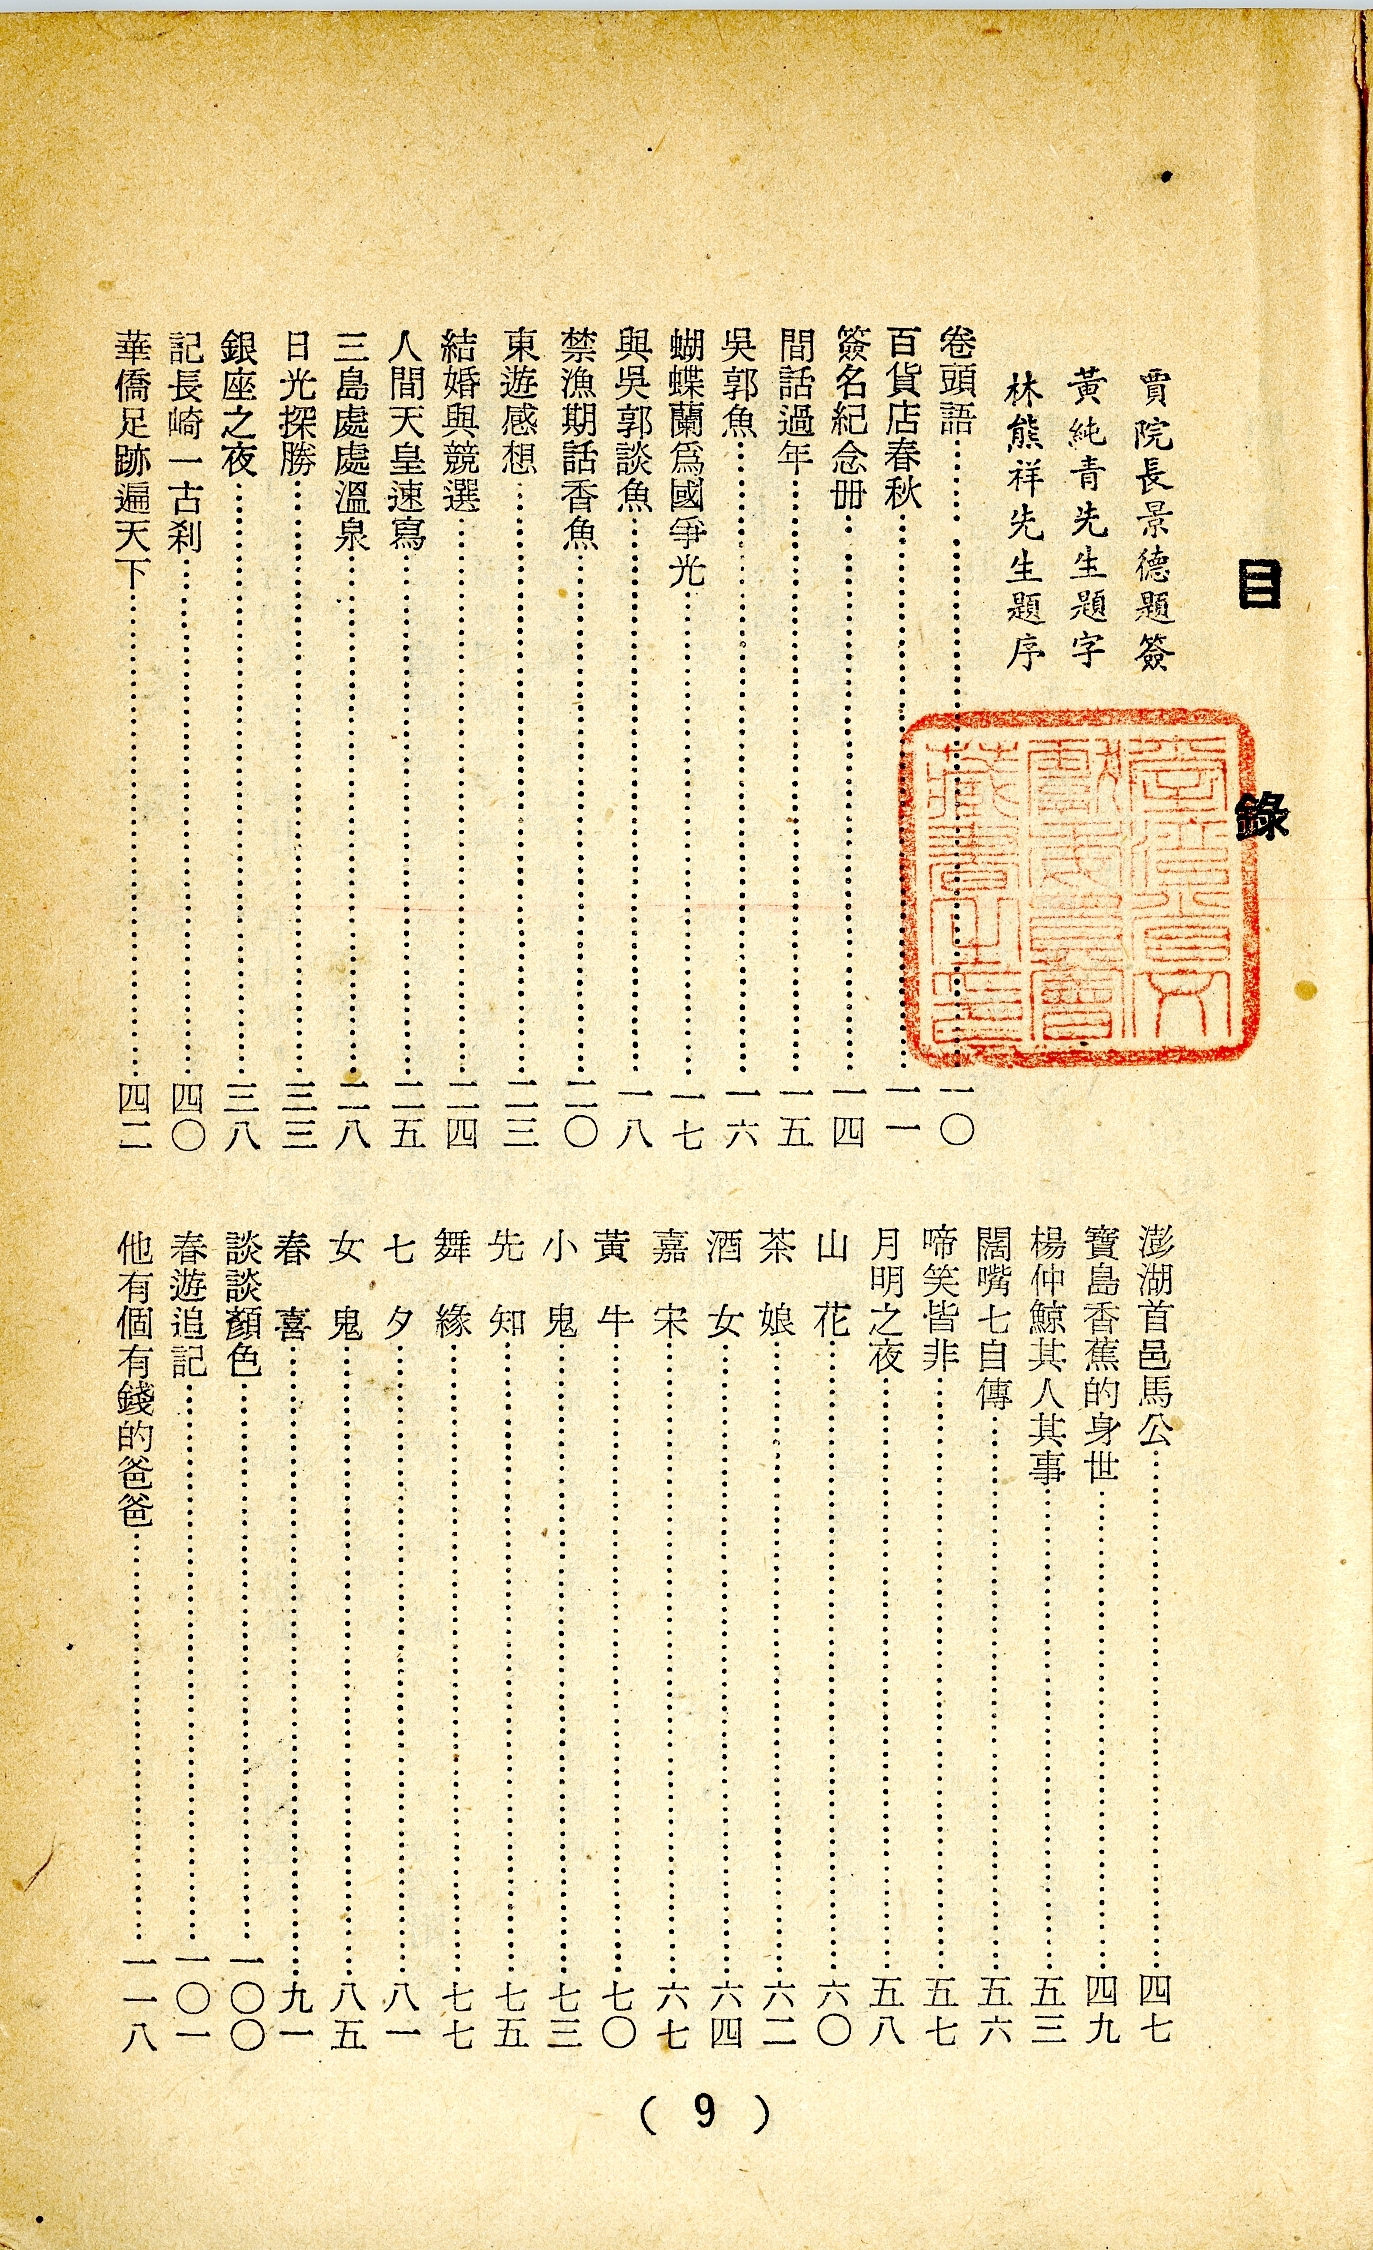 目錄
賈院長景德題簽
黃純青先生題字
林熊祥先生題序
卷頭語………一〇
百貨店春秋………一一
簽名紀念冊………一四
間話過年………一五
吳郭魚………一六
蝴蝶蘭爲國爭光………一七
與吳郭談魚………一八
禁漁期話香魚………二〇
東遊感想………二三
結婚與競選………二四
人間天皇速寫………二五
三島處處溫泉………二八
日光探勝………三三
銀座之夜………三八
記長崎一古剎………四〇
華僑足跡遍天下………四二
澎湖首邑馬公………四七
寶島香蕉的身世………四九
楊仲鯨其人其事………五三
闊嘴七自傳………五六
啼笑皆非………五七
月明之夜………五八
山花………六〇
茶娘………六二
酒女………六四
嘉宋………六七
黃牛………七〇
小鬼………七三
先知………七五
舞緣………七七
七夕………八一
女鬼………八五
春喜………九一
談談顏色………一〇〇
春遊追記………一〇一
他有個有錢的爸爸………一一八
臺灣省文
獻委員會
藏書之章
( 9 )